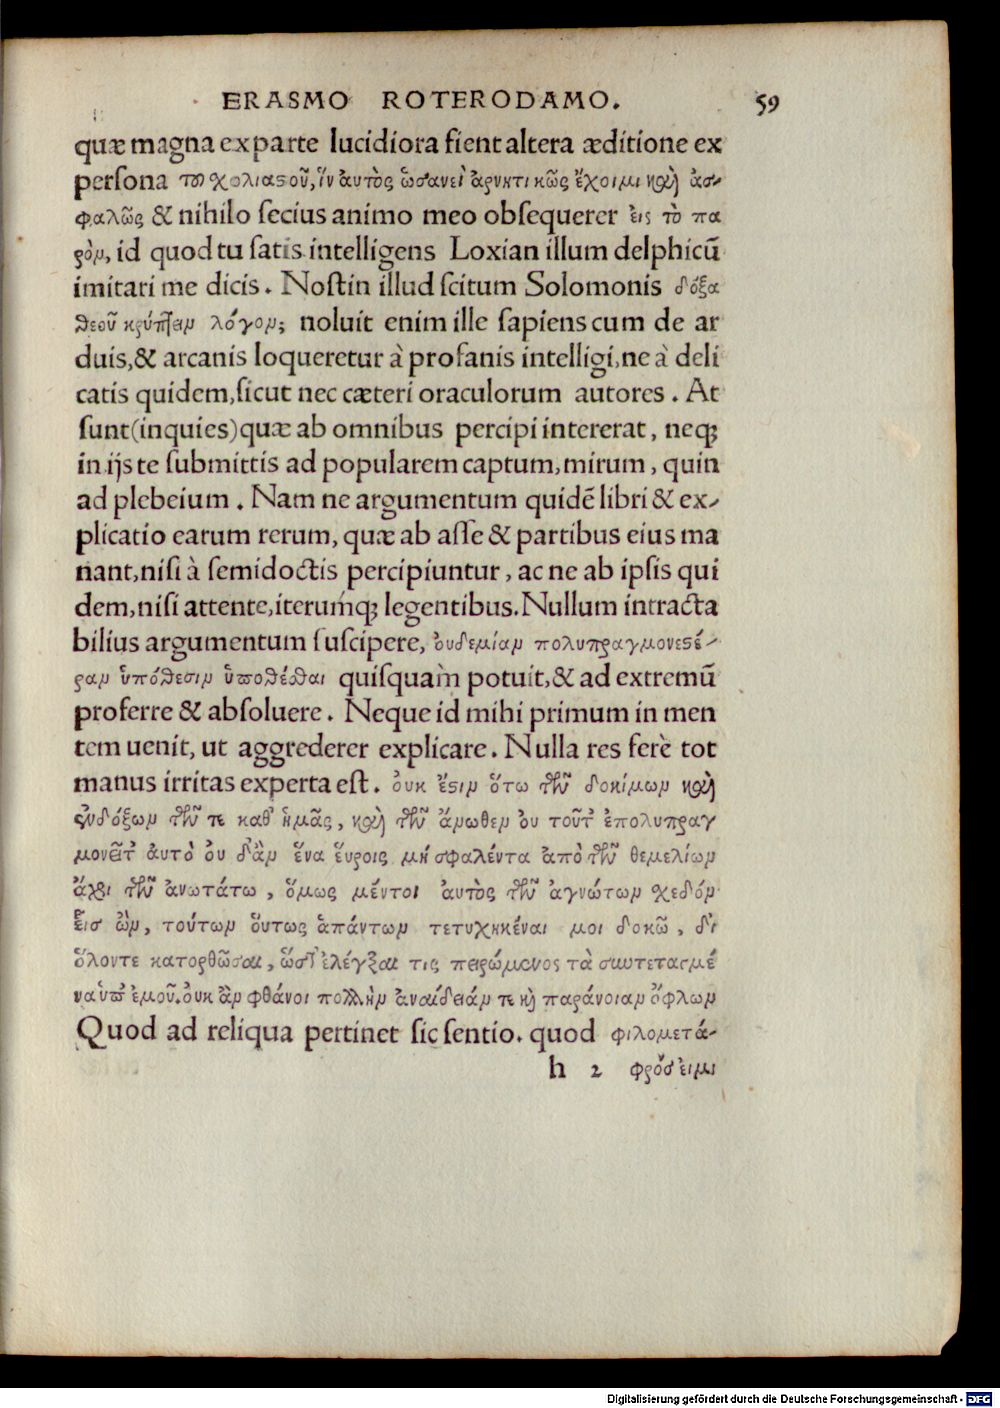 ERASMO ROTERODAMO. 59
quæ magna ex parte lucidiora fient altera æditione ex
persona τοῦ χολιαστοῦ, ἵν ἀυτὸς ὡσανεὶ ἀρνητικῶς ἔχοιμι καὶ ἀσ-
φαλῶς & nihilo secius animo meo obsequerer ἐις τὸ πα
ρὸν, id quod tu satis intelligens Loxian illum delphicū
imitari me dicis. Nostin illud scitum Solomonis δόξα
θεοῦ κρύπτειν λόγον; noluit enim ille sapiens cum de ar
duis,& arcanis loqueretur à profanis intelligi,ne à deli
catis quidem,sicut nec cæteri oraculorum autores. At
sunt(inquies)quæ ab omnibus percipi intererat, neq;
in ijs te submittis ad popularem captum,mirum, quin
ad plebeium. Nam ne argumentum quidē libri & ex-
plicatio earum rerum, quæ ab asse & partibus eius ma
nant,nisi à semidoctis percipiuntur, ac ne ab ipsis qui
dem,nisi attente,iterumq; legentibus. Nullum intracta
bilius argumentum suscipere, ὀυδεμίαν πολυπραγμονεστέ-
ραν ὑπόθεσιν ὑποθέσθαι quisquam potuit,& ad extremū
proferre & absoluere. Neque id mihi primum in men
tem uenit, ut aggrederer explicare. Nulla res ferè tot
manus irritas experta est. ὀυκ ἔστιν ὅτω τῶν δοκίμων καὶ
ἐνδόξων τῶν τε καθ' ἡμᾶς, καὶ τῶν ἄνωθεν ὁυ τοῦτ' ἐπολυπραγ
μονεῖτ' ἀυτὸ ὀυ δ'ἂν ἕνα ἕυροις μὴ σφαλέντα ἀπὸ τῶν θεμελίων
ἄχρι τῶν ἀνωτάτω, ὅμως μέντοι ἀυτὸς τῶν ἀγνώτων χεδόν
εἷσ ὢν, τούτων ὅυτως ἁπάντων τετυχηκέναι μοι δοκῶ, δι
ὅλοντε κατορθῶσαι, ὥστ' ἐλέγξαι τις πειρώμενος τὰ συντεταγμέ
να ὑπ' ἐμοῦ. ὀυκ ἂν φθάνοι πολλὴν ἀναίδειάν τε καὶ παράνοιαν ὄφλων
Quod ad reliqua pertinet sic sentio. quod φιλομετά-
h 2 φρόσ ἐιμι
Digitalisierung gefördert durch die Deutsche Forschungsgemeinschaft - DFG